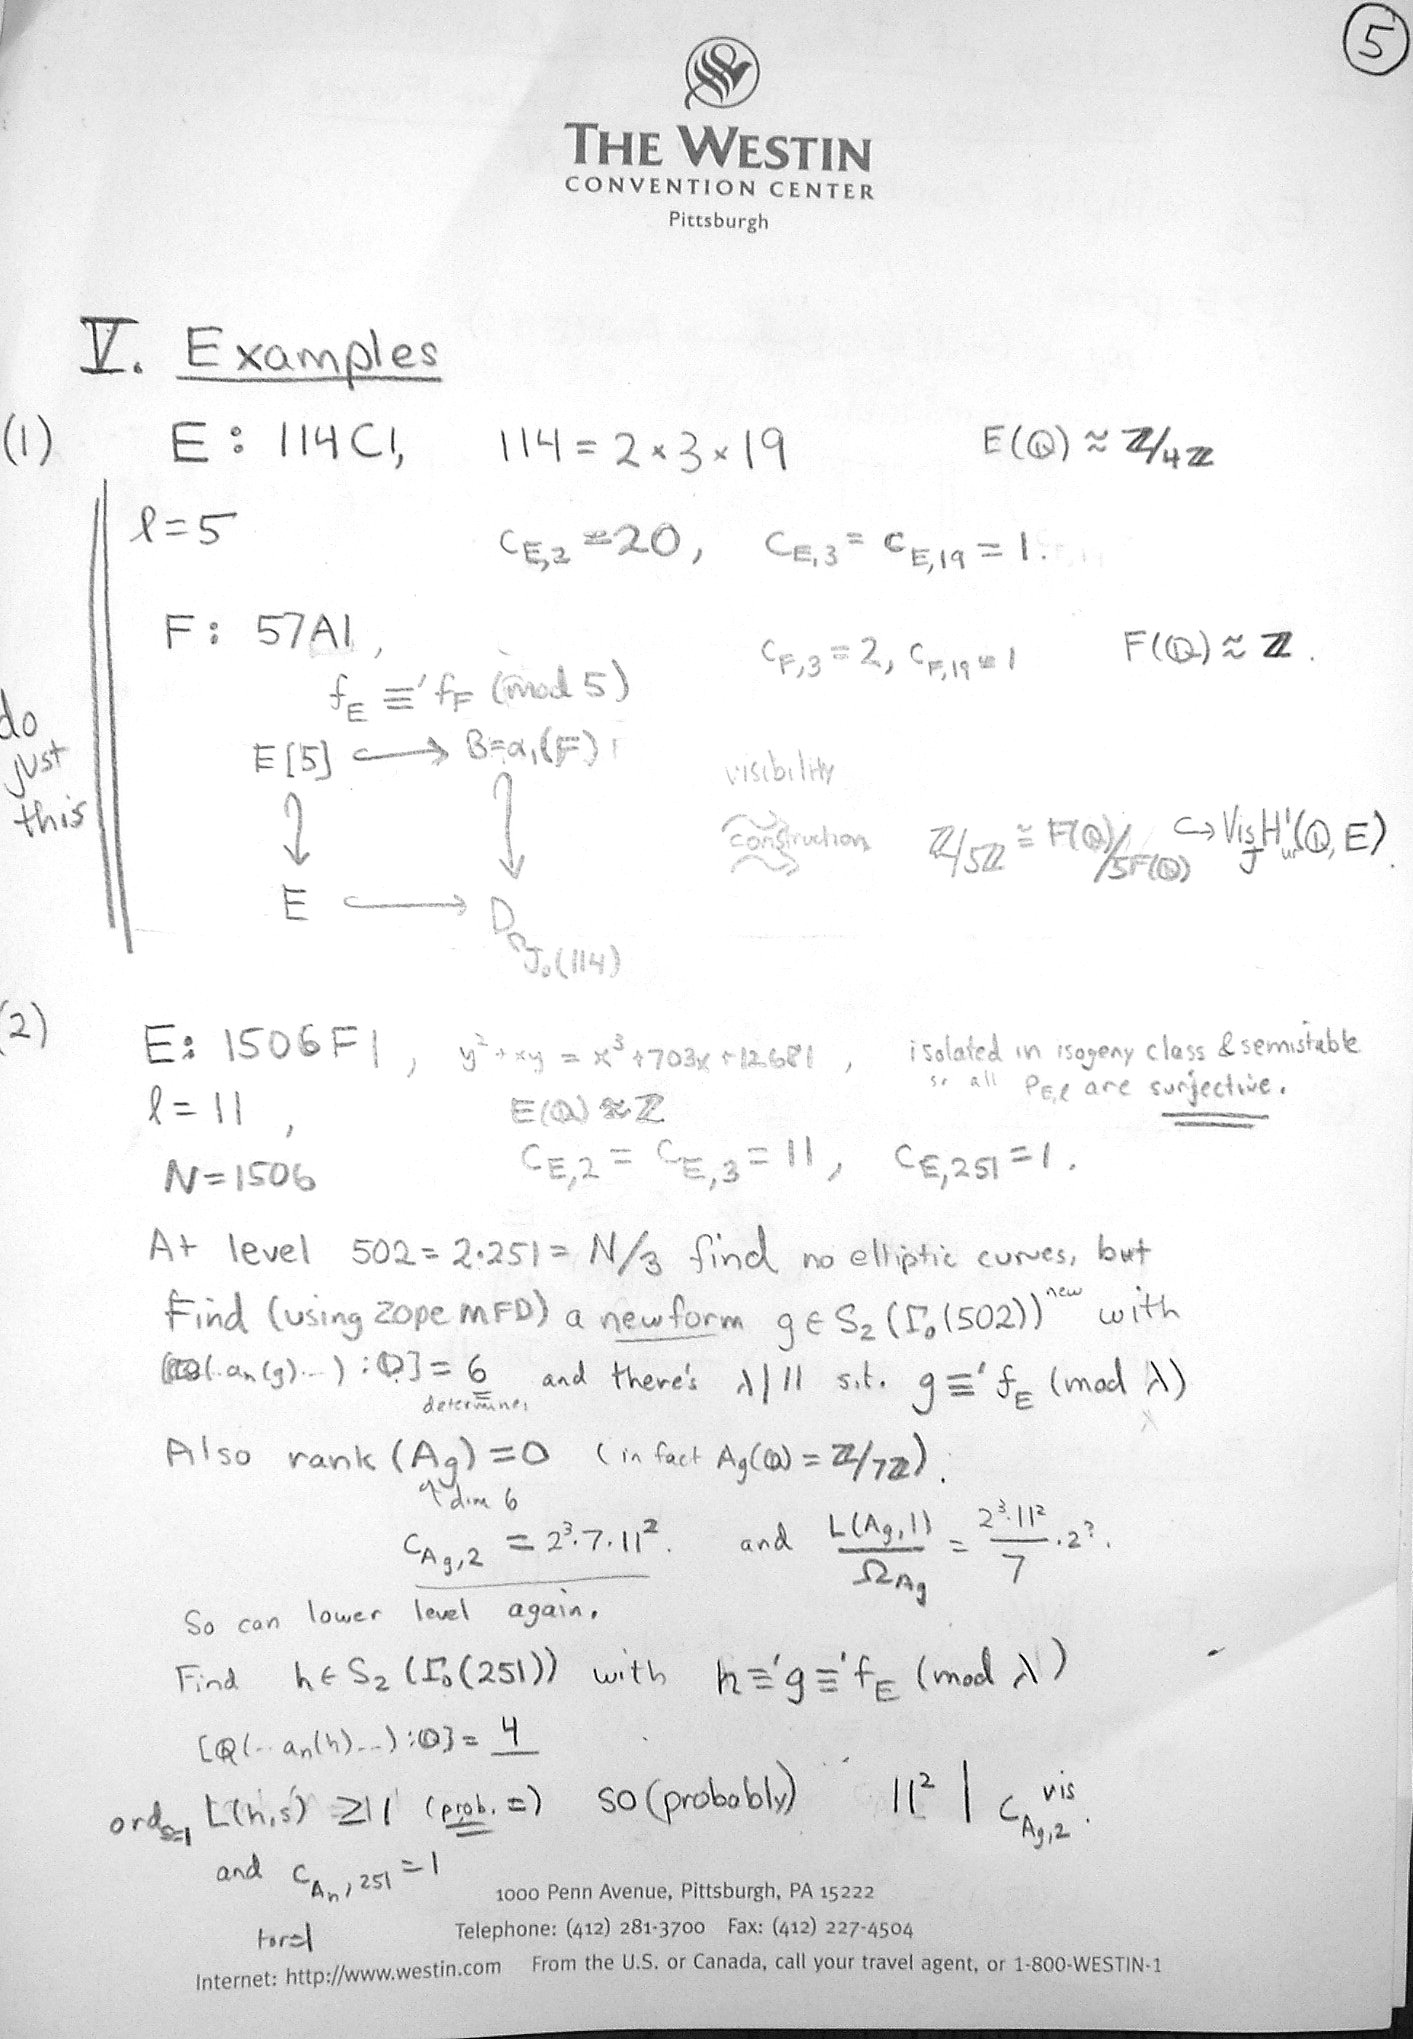 5
THE WESTIN
CONVENTION CENTER
Pittsburgh
V. Examples
(1) E: 114C1, 114 = 2×3×19 E(ℚ) ≈ ℤ/4ℤ
l=5 c_{E,2} = 20, c_{E,3} = c_{E,19} = 1.
F: 57A1, c_{F,3} = 2, c_{F,19} = 1 F(ℚ) ≈ ℤ.
f_E ≡' f_F (mod 5)
do just this
E[5] ↪ B=α₁(F)
↓ ↓
visibility construction ℤ/5ℤ ≅ F(ℚ)/5F(ℚ) ↪ Vis_J H¹_{ur}(ℚ, E)
E ↪ D
∩
J₀(114)
(2) E: 1506F1, y²+xy = x³+703x+12681, isolated in isogeny class & semistable
so all ρ_{E,ℓ} are surjective.
l=11, E(ℚ) ≈ ℤ
N=1506 c_{E,2} = c_{E,3} = 11, c_{E,251} = 1.
At level 502 = 2·251 = N/3 find no elliptic curves, but
find (using zope MFD) a newform g ∈ S₂(Γ₀(502))^{new} with
[ℚ(..aₙ(g)...):ℚ] = 6 and there's λ|11 s.t. g ≡' f_E (mod λ)
determines
Also rank(A_g) = 0 (in fact A_g(ℚ) = ℤ/7ℤ).
↑dim 6
c_{A_g,2} = 2³·7·11². and L(A_g,1)/Ω_{A_g} = 2³·11²/7 · 2^?.
So can lower level again.
Find h ∈ S₂(Γ₀(251)) with h ≡' g ≡' f_E (mod λ)
[ℚ(..aₙ(h)...):ℚ] = 4
ord_{s=1} L(h,s) ≥ 1 (prob. =) so (probably) 11² | c^{vis}_{A_g,2}.
and c_{A_h,251} = 1
1000 Penn Avenue, Pittsburgh, PA 15222
Telephone: (412) 281-3700 Fax: (412) 227-4504
Internet: http://www.westin.com From the U.S. or Canada, call your travel agent, or 1-800-WESTIN-1